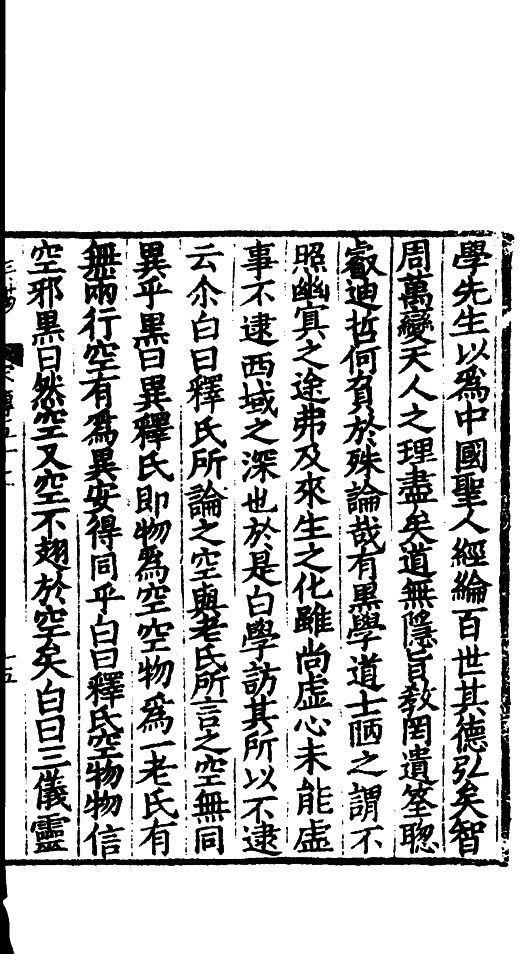 學先生以爲中國聖人經綸百世其德弘矣智
周萬變天人之理盡矣道無隱旨教罔遺筌聦
叡迪哲何負於殊論哉有黒學道士陋之謂不
照幽冥之途弗及來生之化雖尚虛心未能虛
事不逮西域之深也於是白學訪其所以不逮
云尒白曰釋氏所論之空與老氏所言之空無同
異乎黒曰異釋氏即物爲空空物爲一老氏有
無兩行空有爲異安得同乎白曰釋氏空物物信
空邪黒曰然空又空不翅於空矣白曰三儀靈